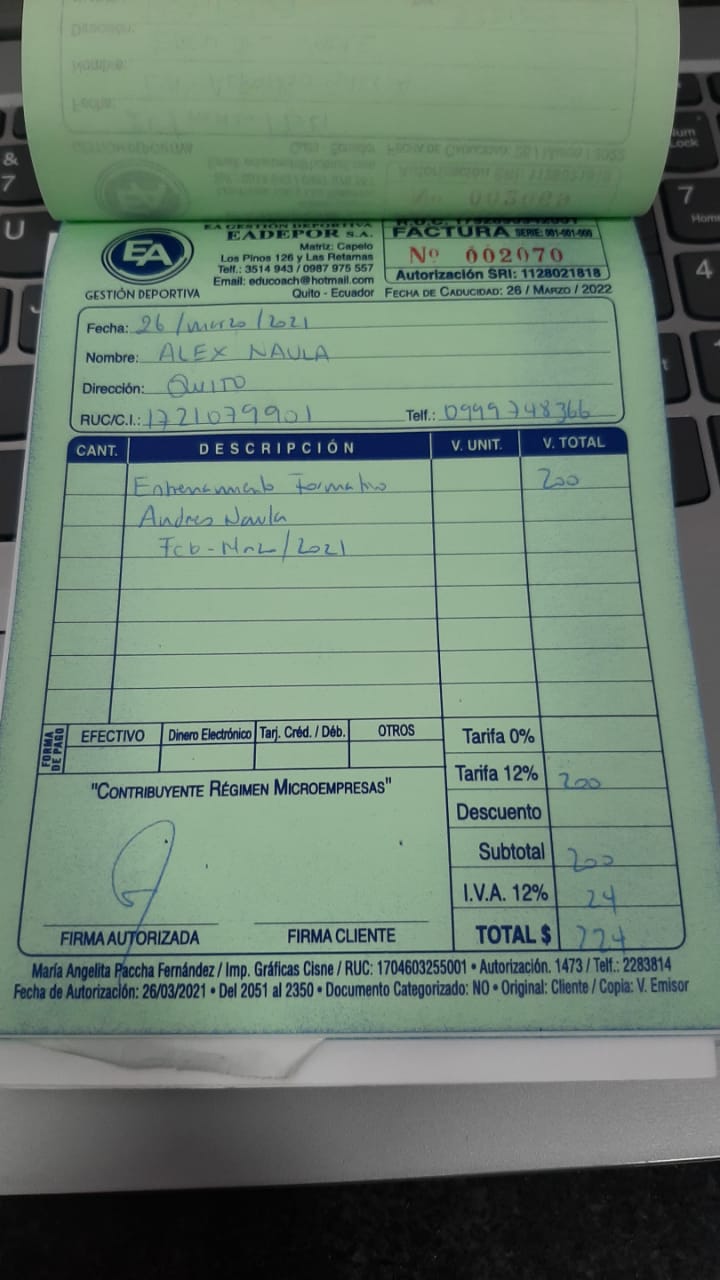 EA
GESTIÓN DEPORTIVA
EA GESTIÓN DEPORTIVA
EADEPOR S.A.
Matriz: Capelo
Los Pinos 126 y Las Retamas
Telf.: 3514 943 / 0987 975 557
Email: educoach@hotmail.com
Quito - Ecuador
FACTURA SERIE: 001-001-000
Nº 002070
Autorización SRI: 1128021818
FECHA DE CADUCIDAD: 26 / MARZO / 2022
Fecha: 26/marzo/2021
Nombre: ALEX NAULA
Dirección: QUITO
RUC/C.I.: 1721079901 Telf.: 0999748366
CANT. DESCRIPCIÓN V. UNIT. V. TOTAL
Entrenamiento Formativo 200
Andres Naula
Feb-Mrz/2021
FORMA DE PAGO
EFECTIVO Dinero Electrónico Tarj. Créd. / Déb. OTROS
Tarifa 0%
Tarifa 12% 200
Descuento
Subtotal 200
I.V.A. 12% 24
TOTAL $ 224
"CONTRIBUYENTE RÉGIMEN MICROEMPRESAS"
FIRMA AUTORIZADA FIRMA CLIENTE
María Angelita Paccha Fernández / Imp. Gráficas Cisne / RUC: 1704603255001 • Autorización. 1473 / Telf.: 2283814
Fecha de Autorización: 26/03/2021 • Del 2051 al 2350 • Documento Categorizado: NO • Original: Cliente / Copia: V. Emisor
&
7
U
7
Home
4
Num
Lock